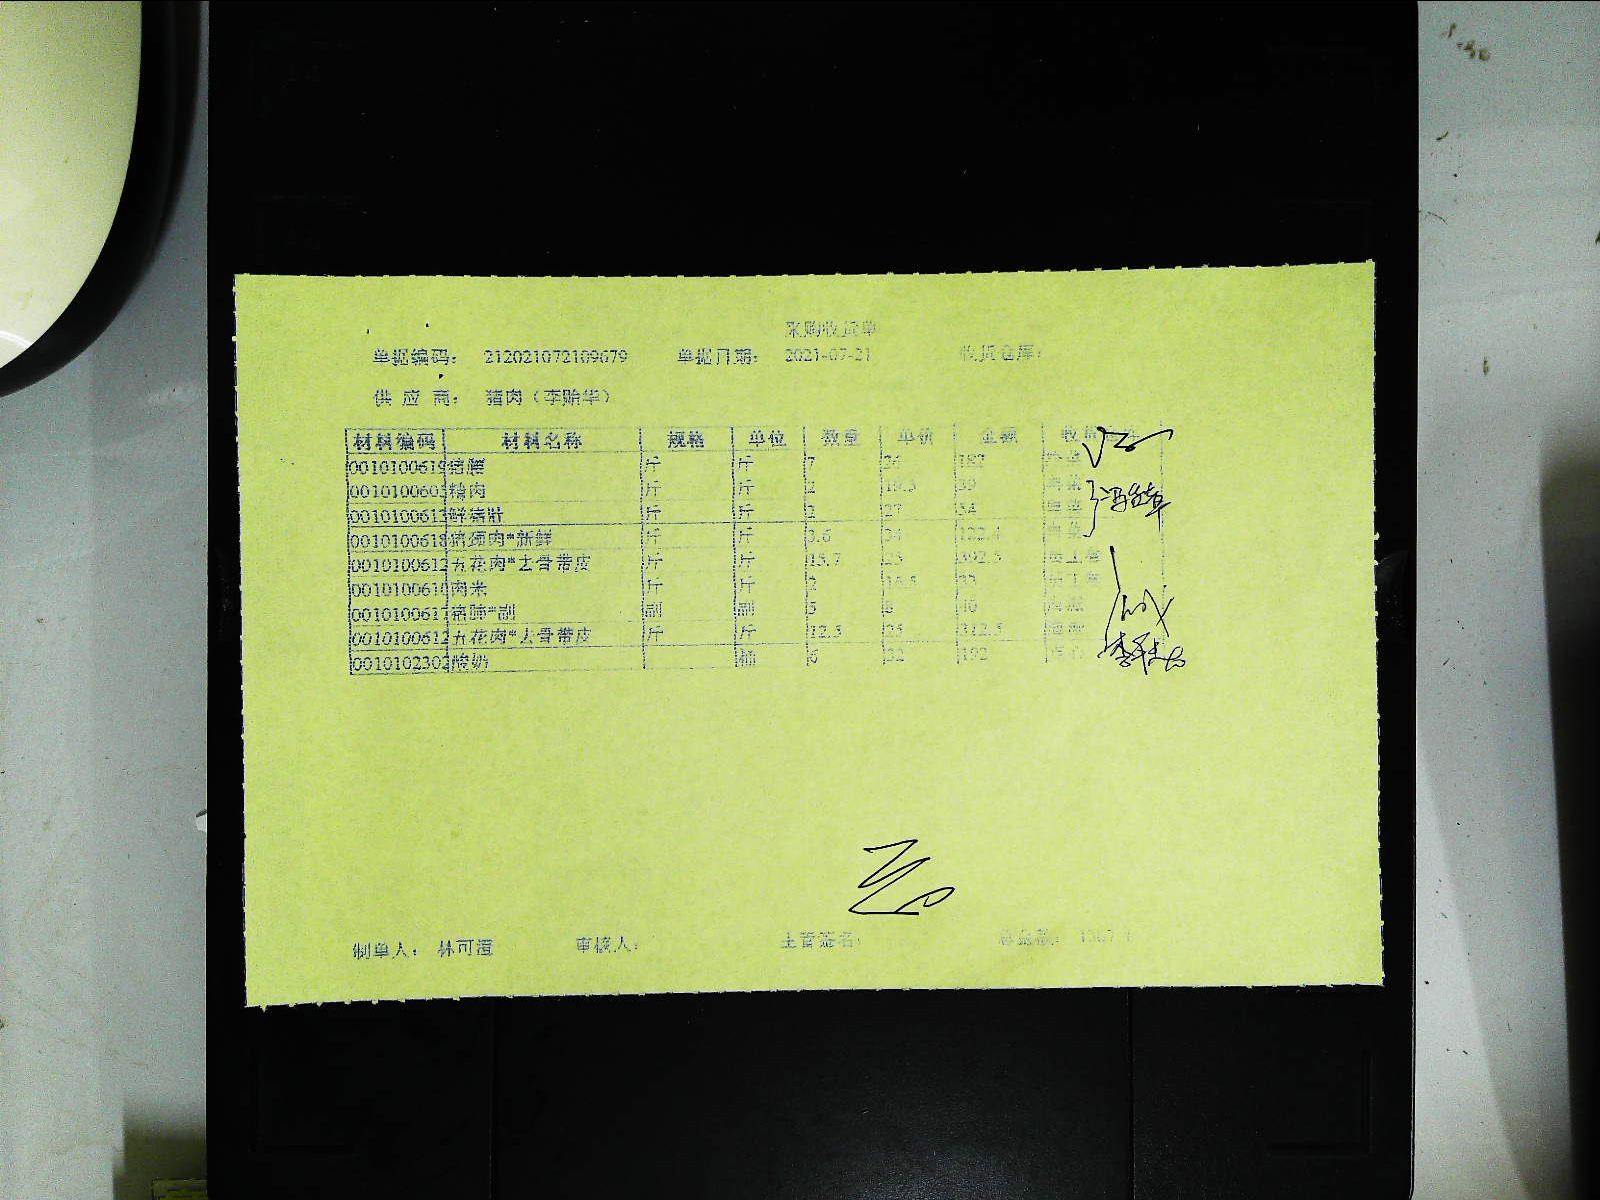 采购收货单
单据编码： 212021072109679 单据日期： 2021-07-21 收货仓库：
供 应 商： 猪肉（李贻华）
材料编码 材料名称 规格 单位 数量 单价 金额
0010100619 猪腰 斤 斤 7 26 182
0010100603 精肉 斤 斤 2 19.5 39
0010100613 鲜猪肚 斤 斤 2 27 54
0010100618 猪颈肉*新鲜 斤 斤 3.6 34 122.4
0010100612 五花肉*去骨带皮 斤 斤 15.7 25 392.5 员工餐
0010100610 肉米 斤 斤 2 16.5 33 员工餐
0010100617 猪肺*副 副 副 5 8 40
0010100612 五花肉*去骨带皮 斤 斤 12.5 25 312.5
0010102302 酸奶 桶 6 32 192
制单人： 林可澄 审核人： 主管签名： 总金额：